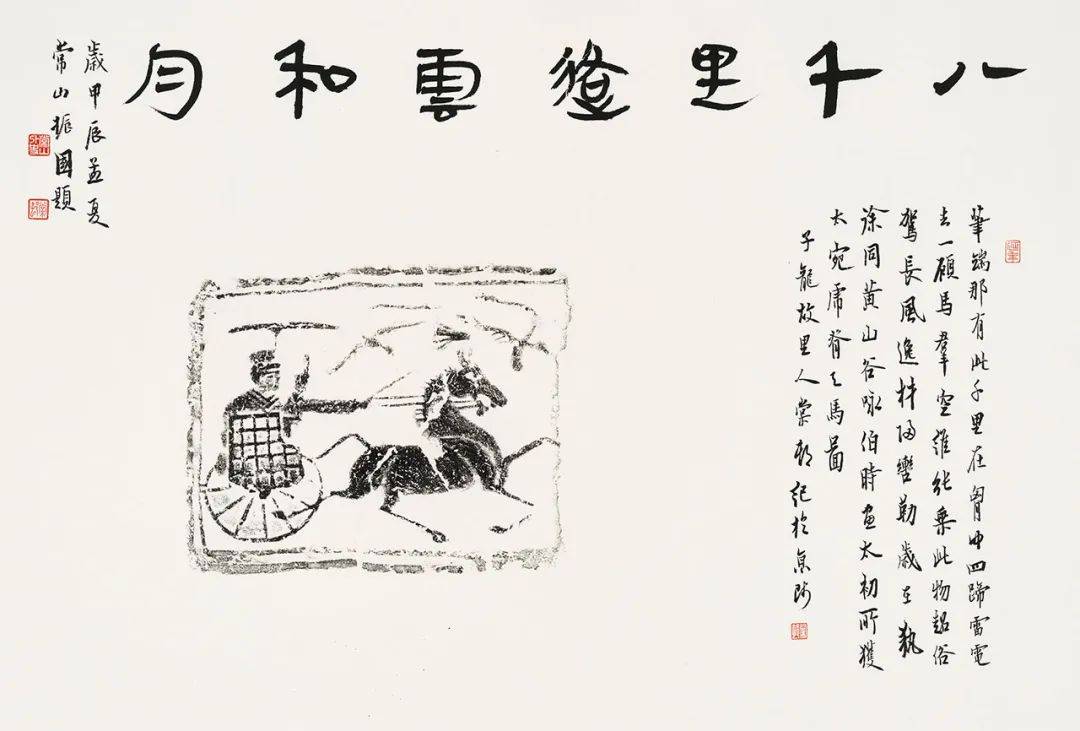 八千里路雲和月
歲甲辰孟夏
常山振國題
筆端那有此千里在胷中四蹄雷電
去一顧馬羣空誰能乘此物超俗
駕長風逸材歸轡勒歲在執
徐同黃山谷詠伯時畫太初所獲
太宛虎脊天馬圖
子龍故里人棠邨紀於京師